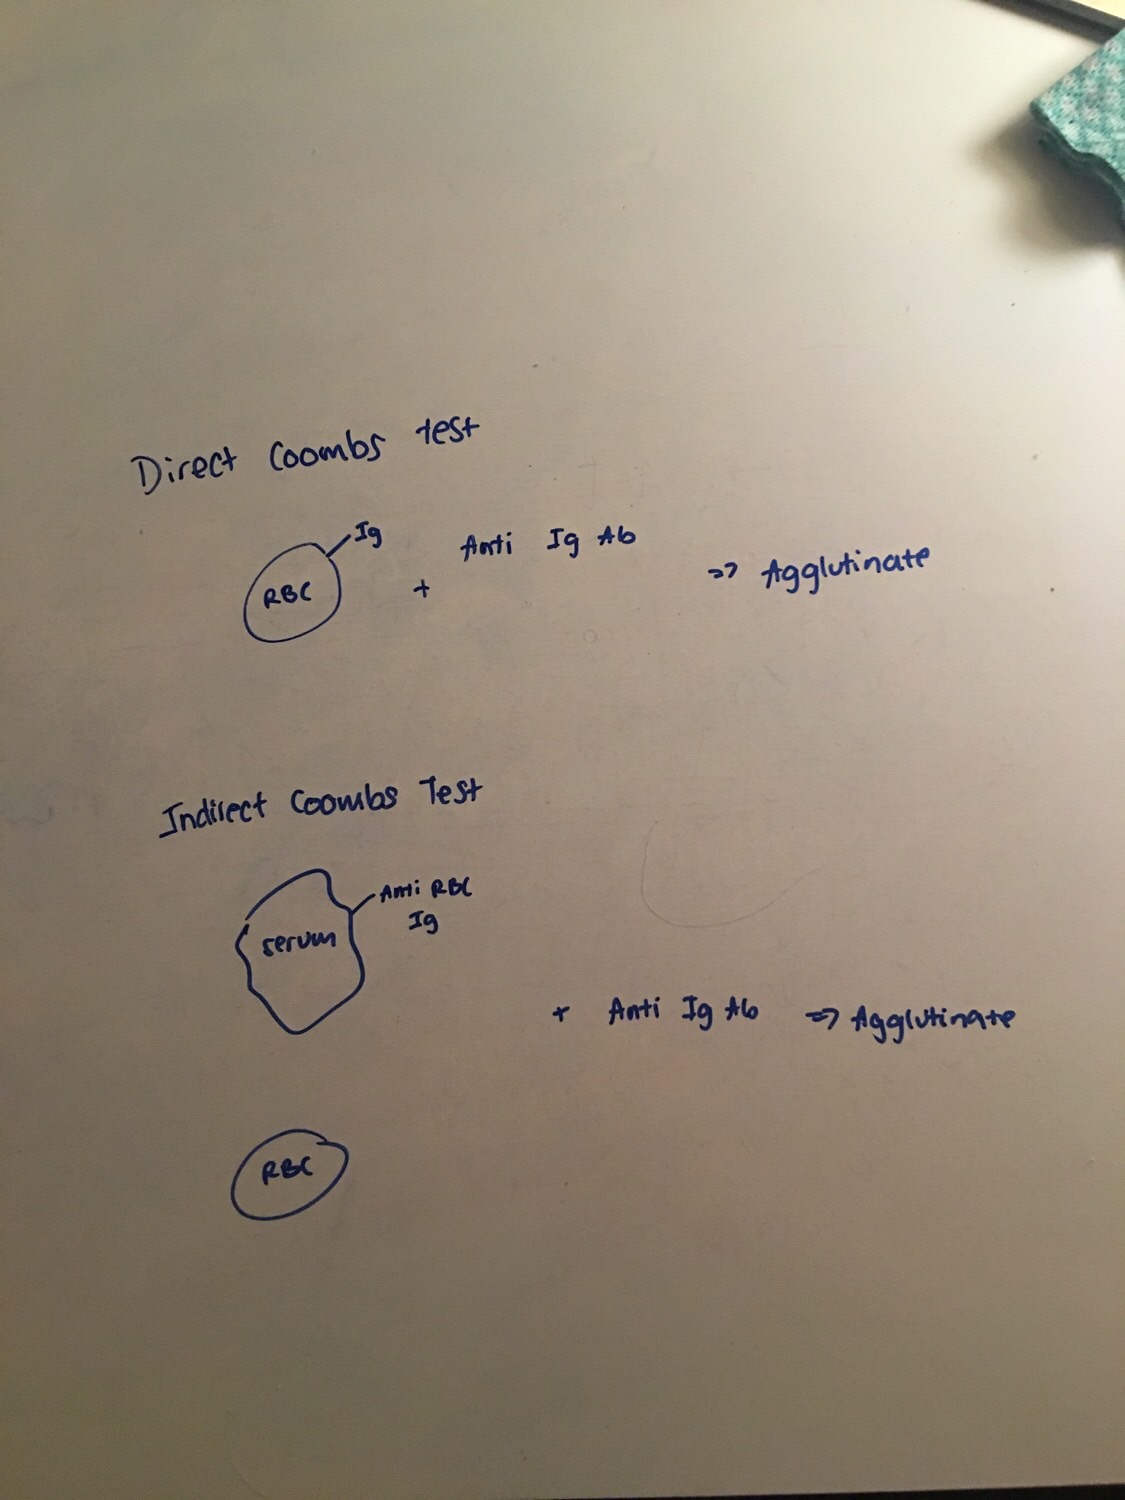 Direct Coombs test
Ig
RBC
+
Anti Ig Ab
=> Agglutinate
Indirect Coombs Test
Anti RBC
Ig
serum
+ Anti Ig Ab => Agglutinate
RBC